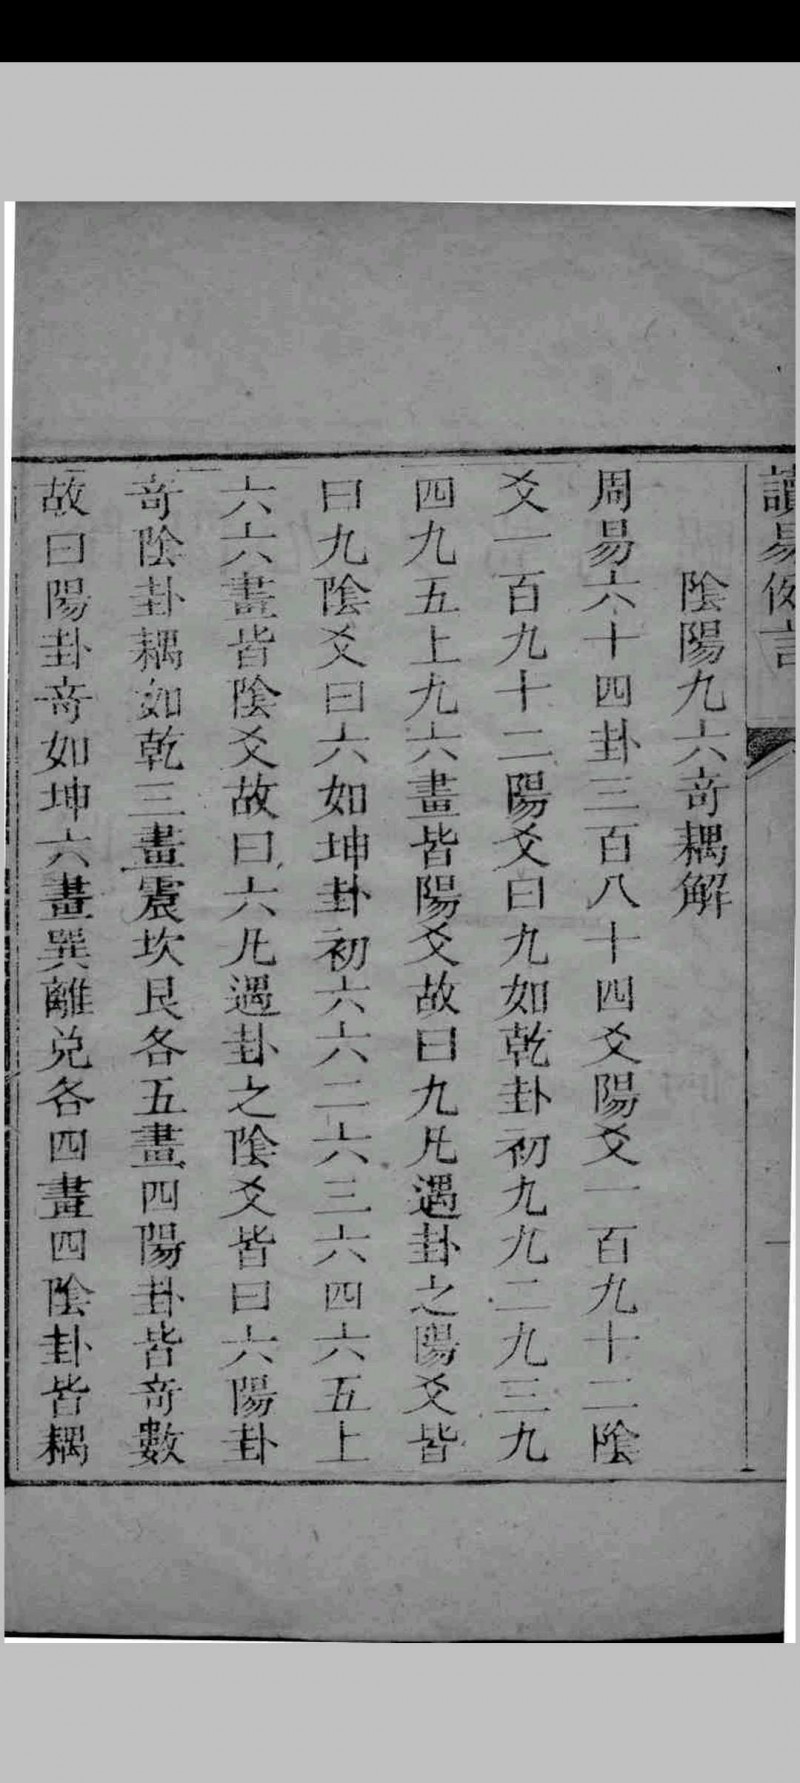 讀易例言
陰陽九六奇耦解
周易六十四卦三百八十四爻陽爻一百九十二陰
爻一百九十二陽爻曰九如乾卦初九九二九三九
四九五上九六畫皆陽爻故曰九凡遇卦之陽爻皆
曰九陰爻曰六如坤卦初六六二六三六四六五上
六六畫皆陰爻故曰六凡遇卦之陰爻皆曰六陽卦
奇陰卦耦如乾三畫震坎艮各五畫四陽卦皆奇數
故曰陽卦奇如坤六畫巽離兌各四畫四陰卦皆耦